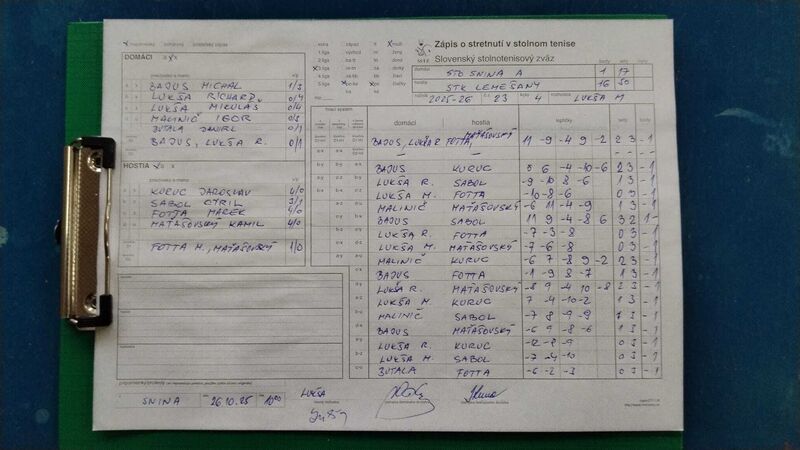 Zápis o stretnutí v stolnom tenise
Slovenský stolnotenisový zväz
domáci STO SNINA A 1 17
hostia STK LEMEŠANY 16 50
2025-26 č.z. 23 kolo 4 rozhodca LUKŠA M
DOMÁCI
BAJUS MICHAL 1/3
LUKŠA RICHARD 0/4
LUKŠA MIKULÁŠ 0/4
MALINIČ IGOR 0/3
BUTALA DANIEL 0/1
BAJUS, LUKŠA R. 0/1
HOSTIA
KURUC JAROSLAV 4/0
SABOL CYRIL 3/1
FOTTA MAREK 4/0
MAŤAŠOVSKÝ KAMIL 4/0
FOTTA M., MAŤAŠOVSKÝ 1/0
domáci hostia
BAJUS, LUKŠA R. FOTTA, MAŤAŠOVSKÝ 11 -9 -4 9 -2 2 3 - 1
BAJUS KURUC 8 6 -4 -10 -6 2 3 - 1
LUKŠA R. SABOL -9 -10 8 -6 1 3 - 1
LUKŠA M. FOTTA -10 -8 -6 0 3 - 1
MALINIČ MAŤAŠOVSKÝ -6 11 -4 -9 1 3 - 1
BAJUS SABOL 11 9 -4 -8 6 3 2 1 -
LUKŠA R. FOTTA -7 -3 -8 0 3 - 1
LUKŠA M. MAŤAŠOVSKÝ -7 -6 -8 0 3 - 1
MALINIČ KURUC -6 7 -8 9 -2 2 3 - 1
BAJUS FOTTA -1 -9 8 -7 1 3 - 1
LUKŠA R. MAŤAŠOVSKÝ -8 9 -4 10 -8 2 3 - 1
LUKŠA M. KURUC 7 -4 -10 -2 1 3 - 1
MALINIČ SABOL -7 8 -9 -9 1 3 - 1
BAJUS MAŤAŠOVSKÝ -6 9 -8 -6 1 3 - 1
LUKŠA R. KURUC -12 -8 -9 0 3 - 1
LUKŠA M. SABOL -7 -4 -10 0 3 - 1
BUTALA FOTTA -6 -2 -3 0 3 - 1
SNINA 26.10.25 10:00 LUKŠA